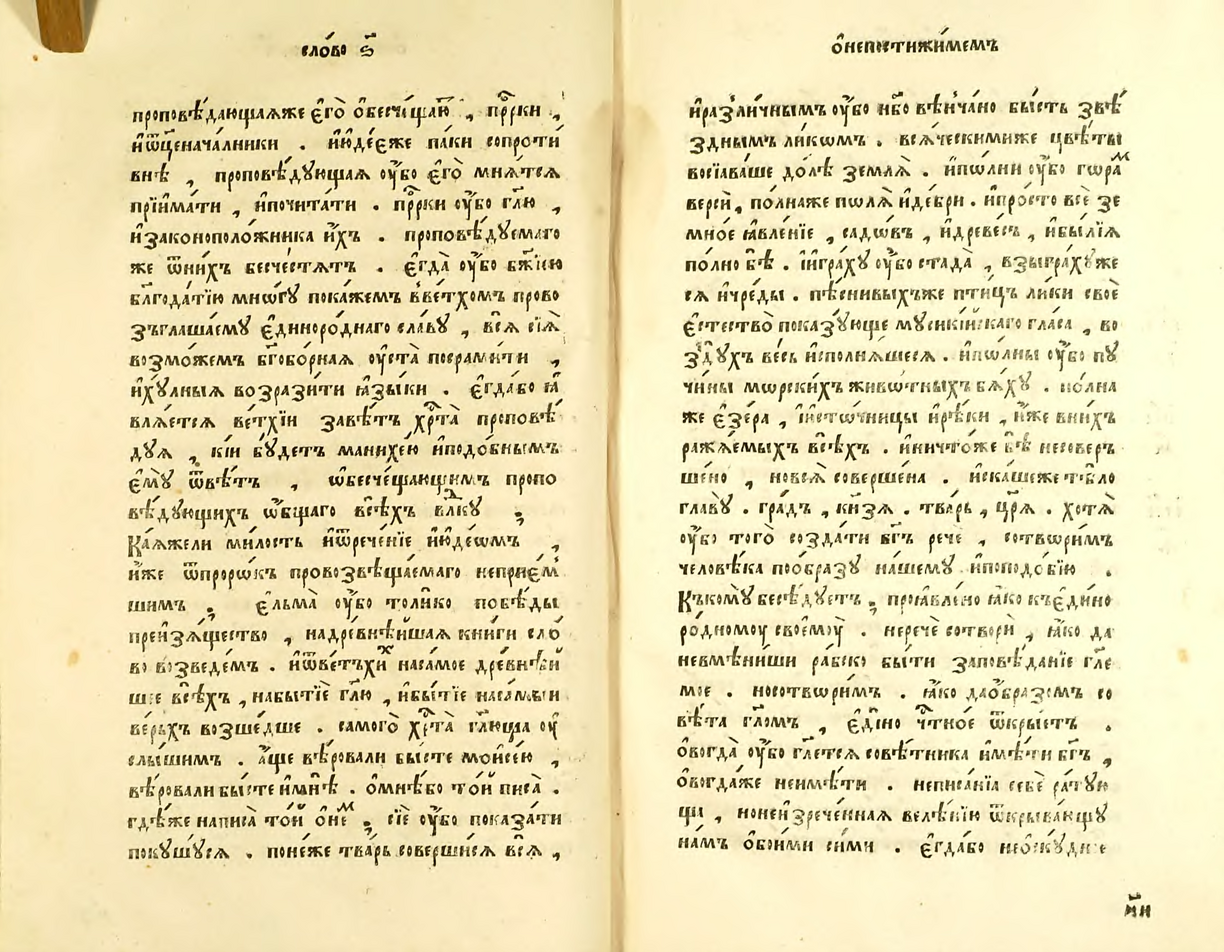 сло́во ѕ҃
проповѣ́дающаѧже є҆го̀ ѻ҆бесчѝщаю҄ , прⷪ҇рки ,
и҆ѿценача́лники . и҆і҆ꙋде́єже па́ки сопроти
внѣ̀ , проповѣ́дꙋющаѧ ᲂу҆́бо є҆го̀ мнѧ́тсѧ
прїима́ти , и҆почита́ти . прⷪ҇рки ᲂу҆́бо гл҃ю ,
и҆законополо́жника и҆́хъ . проповѣ́дꙋемаго
же ѿни́хъ бесче́стѧтъ . є҆гда̀ ᲂу҆́бо бж҃їею
блгⷣа́тїю мно́гꙋ пока́жемъ в̾ве́тхомъ прово
зъглаша́емꙋ є҆диноро́днаго сла́вꙋ , всѧ̀ сїѧ̀
возмо́жемъ бг҃обо́рнаѧ ᲂу҆ста̀ посрами́ти ,
и҆хꙋ́лныѧ возрази́ти ѧ҆зы́ки . є҆гда́бо ѧ҆
влѧ́етсѧ ве́тхїи завѣ́тъ хрⷭ҇та̀ проповѣ́
дꙋѧ , кі́и бꙋ́детъ манихе́ю и҆подо́бнымъ
є҆мꙋ̀ ѿвѣ́тъ , ѡ҆бесче́щающимъ пропо
вѣ́дꙋющихъ ѻ҆́бщаго всѣ́хъ влⷣкꙋ ;
Каѧ́жели ми́лость и҆ѿрече́нїе і҆ꙋде́ѡмъ ,
и҆́же ѿпроро́къ провозвѣща́емаго неприє́м
шимъ ; є҆льма̀ ᲂу҆́бо толи́ко побѣ́ды
преизѧ́щество , надревнѣ́йшаѧ кни́ги сло́
во возведе́мъ . и҆ѿве́тхиⷯ наса́мое дре́внѣй
шее всѣ́хъ , набытїѐ гл҃ю , и҆бытїѐ наса́мыи
ве́рьхъ возше́дше . самого̀ хрⷭ҇та̀ гл҃юща ᲂу҆
слы́шимъ . а҆́ще вѣ́ровали бы́сте моисе́ю ,
вѣ́ровали бы́сте и҆мнѣ̀ . ѻ҆мнѣ́бо то́й писа̀ .
гдѣ́же написа̀ то́й ѻ҆не́ⷨ ; сїѐ ᲂу҆́бо показа́ти
покꙋшꙋ́сѧ . поне́же тва́рь соверши́сѧ всѧ̀ ,
ѻ҆непости́жимемъ
и҆разли́чнымъ ᲂу҆́бо нб҃о вѣнча́но бы́сть звѣ́
здны́мъ ли́комъ . всѧ́ческимиже цвѣты̀
восїѧва́ше до́лѣ землѧ̀ . и҆пѡ́лни ᲂу҆́бо го́раⷨ
верси̑ , по́лнаже полѧ̀ и҆де́бри . и҆про́сто всѐ зе
мно́е ѧ҆вле́нїе , садо́въ , и҆древе́съ , и҆бы́лїѧ
по́лно бѣ̀ . и҆игра́хꙋ ᲂу҆́бо стада̀ , взыгра́хꙋже
сѧ и҆чреды̀ . пѣсни́выхъже пти́цъ ли́ки своѐ
є҆стество̀ показꙋ́юще мꙋсикі́йскаго гла́са , во
здꙋхъ ве́сь и҆сполнѧ́шесѧ . и҆пѡ́лны ᲂу҆́бо пꙋ
чи́ны мѡрски́хъ живо́тныхъ бѧ́хꙋ . по́лна
же є҆зе́ра , и҆исто́чницы и҆рѣ́ки , и҆́же вни́хъ
ража́емыхъ всѣ́хъ . и҆ничто́же бѣ̀ несовер
ше́но , новсѧ̀ соверше́на . и҆ска́шеже тѣ́ло
главꙋ̀ . гра́дъ , кнѧ́зѧ . тва́рь , цр҃ѧ̀ . хотѧ̀
ᲂу҆́бо того̀ созда́ти бг҃ъ речѐ , сотвори́мъ
человѣ́ка поо́бразꙋ на́шемꙋ и҆поподо́бїю .
Къкомꙋ̀ бесѣ́дꙋетъ ; проѧвле́но ꙗ҆́ко къє҆дино
ро́дномоу своемоу̀ . неречѐ сотворѝ , ꙗ҆́ко да
невмѣни́ши ра́бско бы́ти заповѣ́данїе гл҃е
мое . носотвори́мъ . ꙗ҆́ко дао́бразомъ со
вѣ́та гл҃омъ , є҆ди́но чтⷭ҇ное ѿкры́етъ .
ѻ҆вогда̀ ᲂу҆́бо гл҃етсѧ совѣ́тника и҆мѣ́ти бг҃ъ ,
ѻ҆вогда́же неимѣ́ти . неписа́нїѧ себѐ ра́тꙋю
ща , нонеизрече́ннаѧ велѣ́нїю ѿкрыва́ющꙋ
на́мъ ѻ҆бои́ми си́ми . є҆гда́бо неѻскꙋ́дне
м҃и